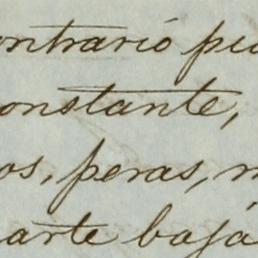 ontrario
constante,
os, peras,
arte bajá